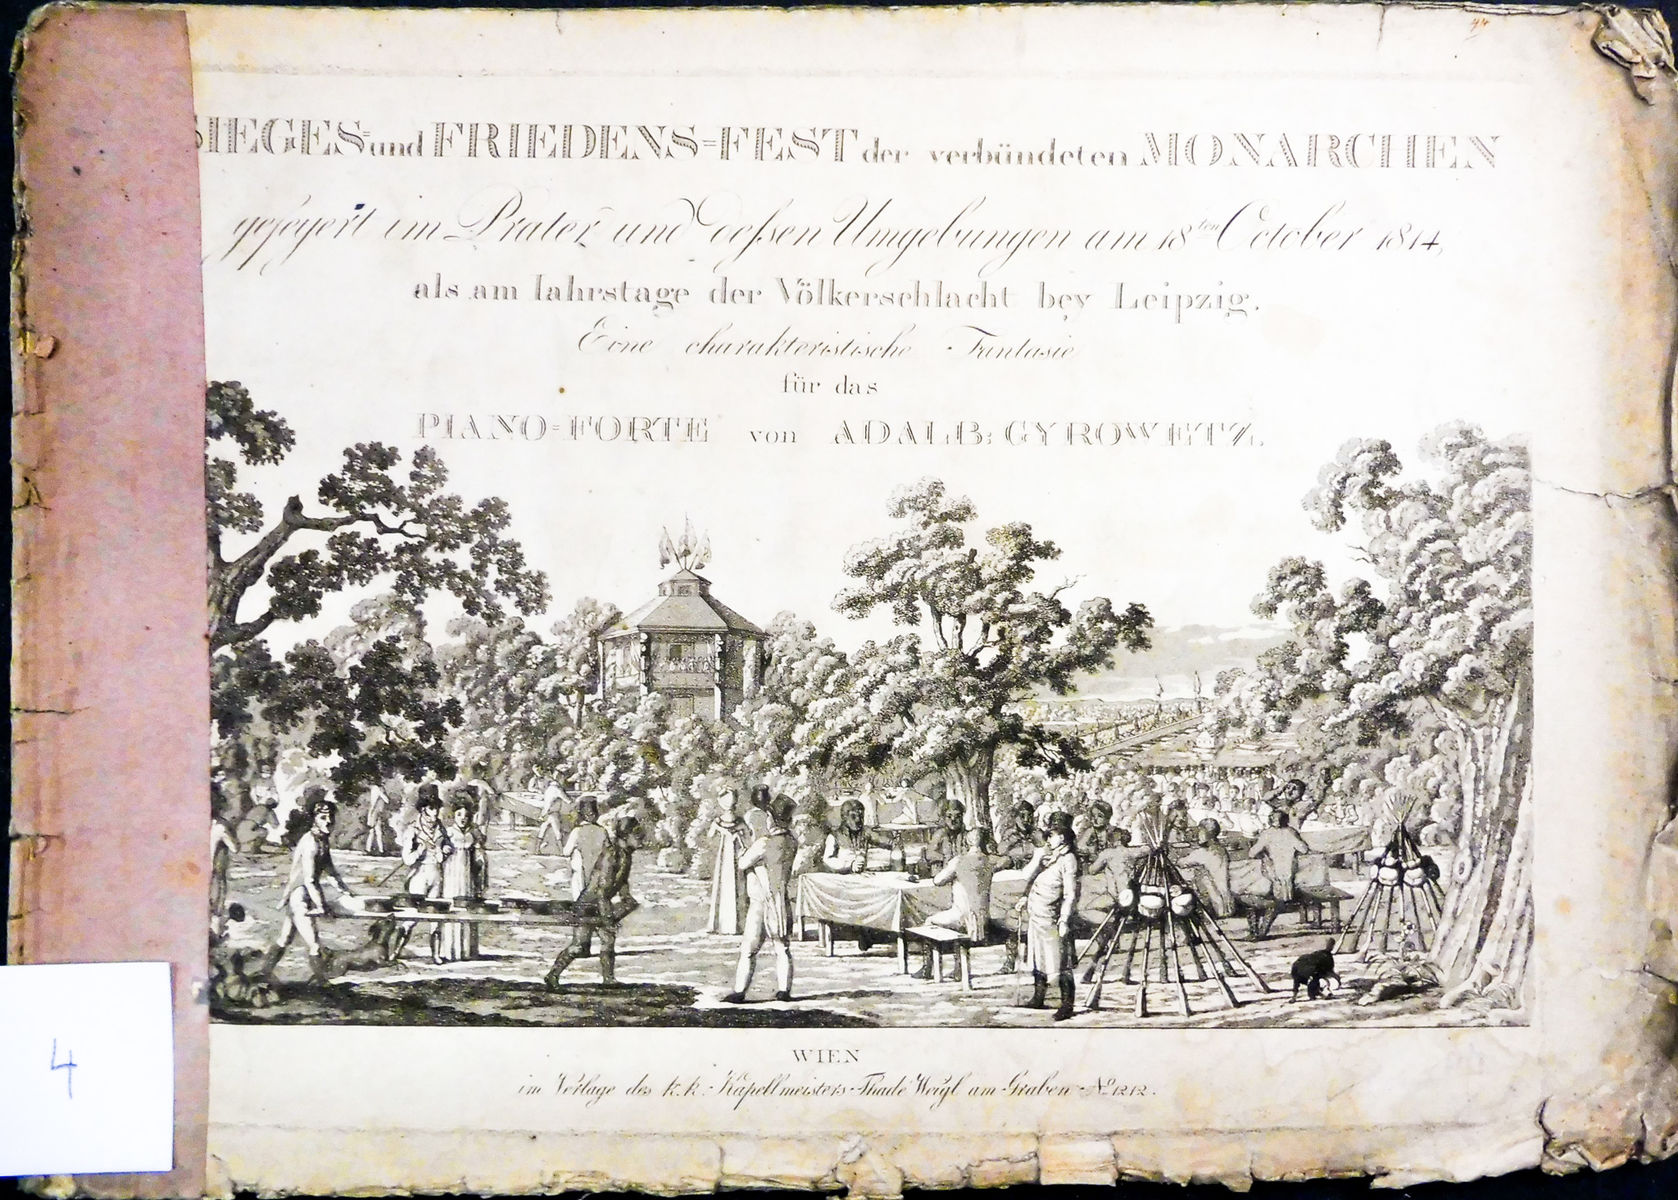 44
SIEGES= und FRIEDENS=FEST der verbündeten MONARCHEN
gefeyert im Prater und deßen Umgebungen am 18ten October 1814,
als am Iahrstage der Völkerschlacht bey Leipzig.
Eine charakteristische Fantasie
für das
PIANO=FORTE von ADALB: GYROWETZ.
WIEN
im Verlage des k. k. Kapellmeisters Thade Weigl am Graben No 1212.
4